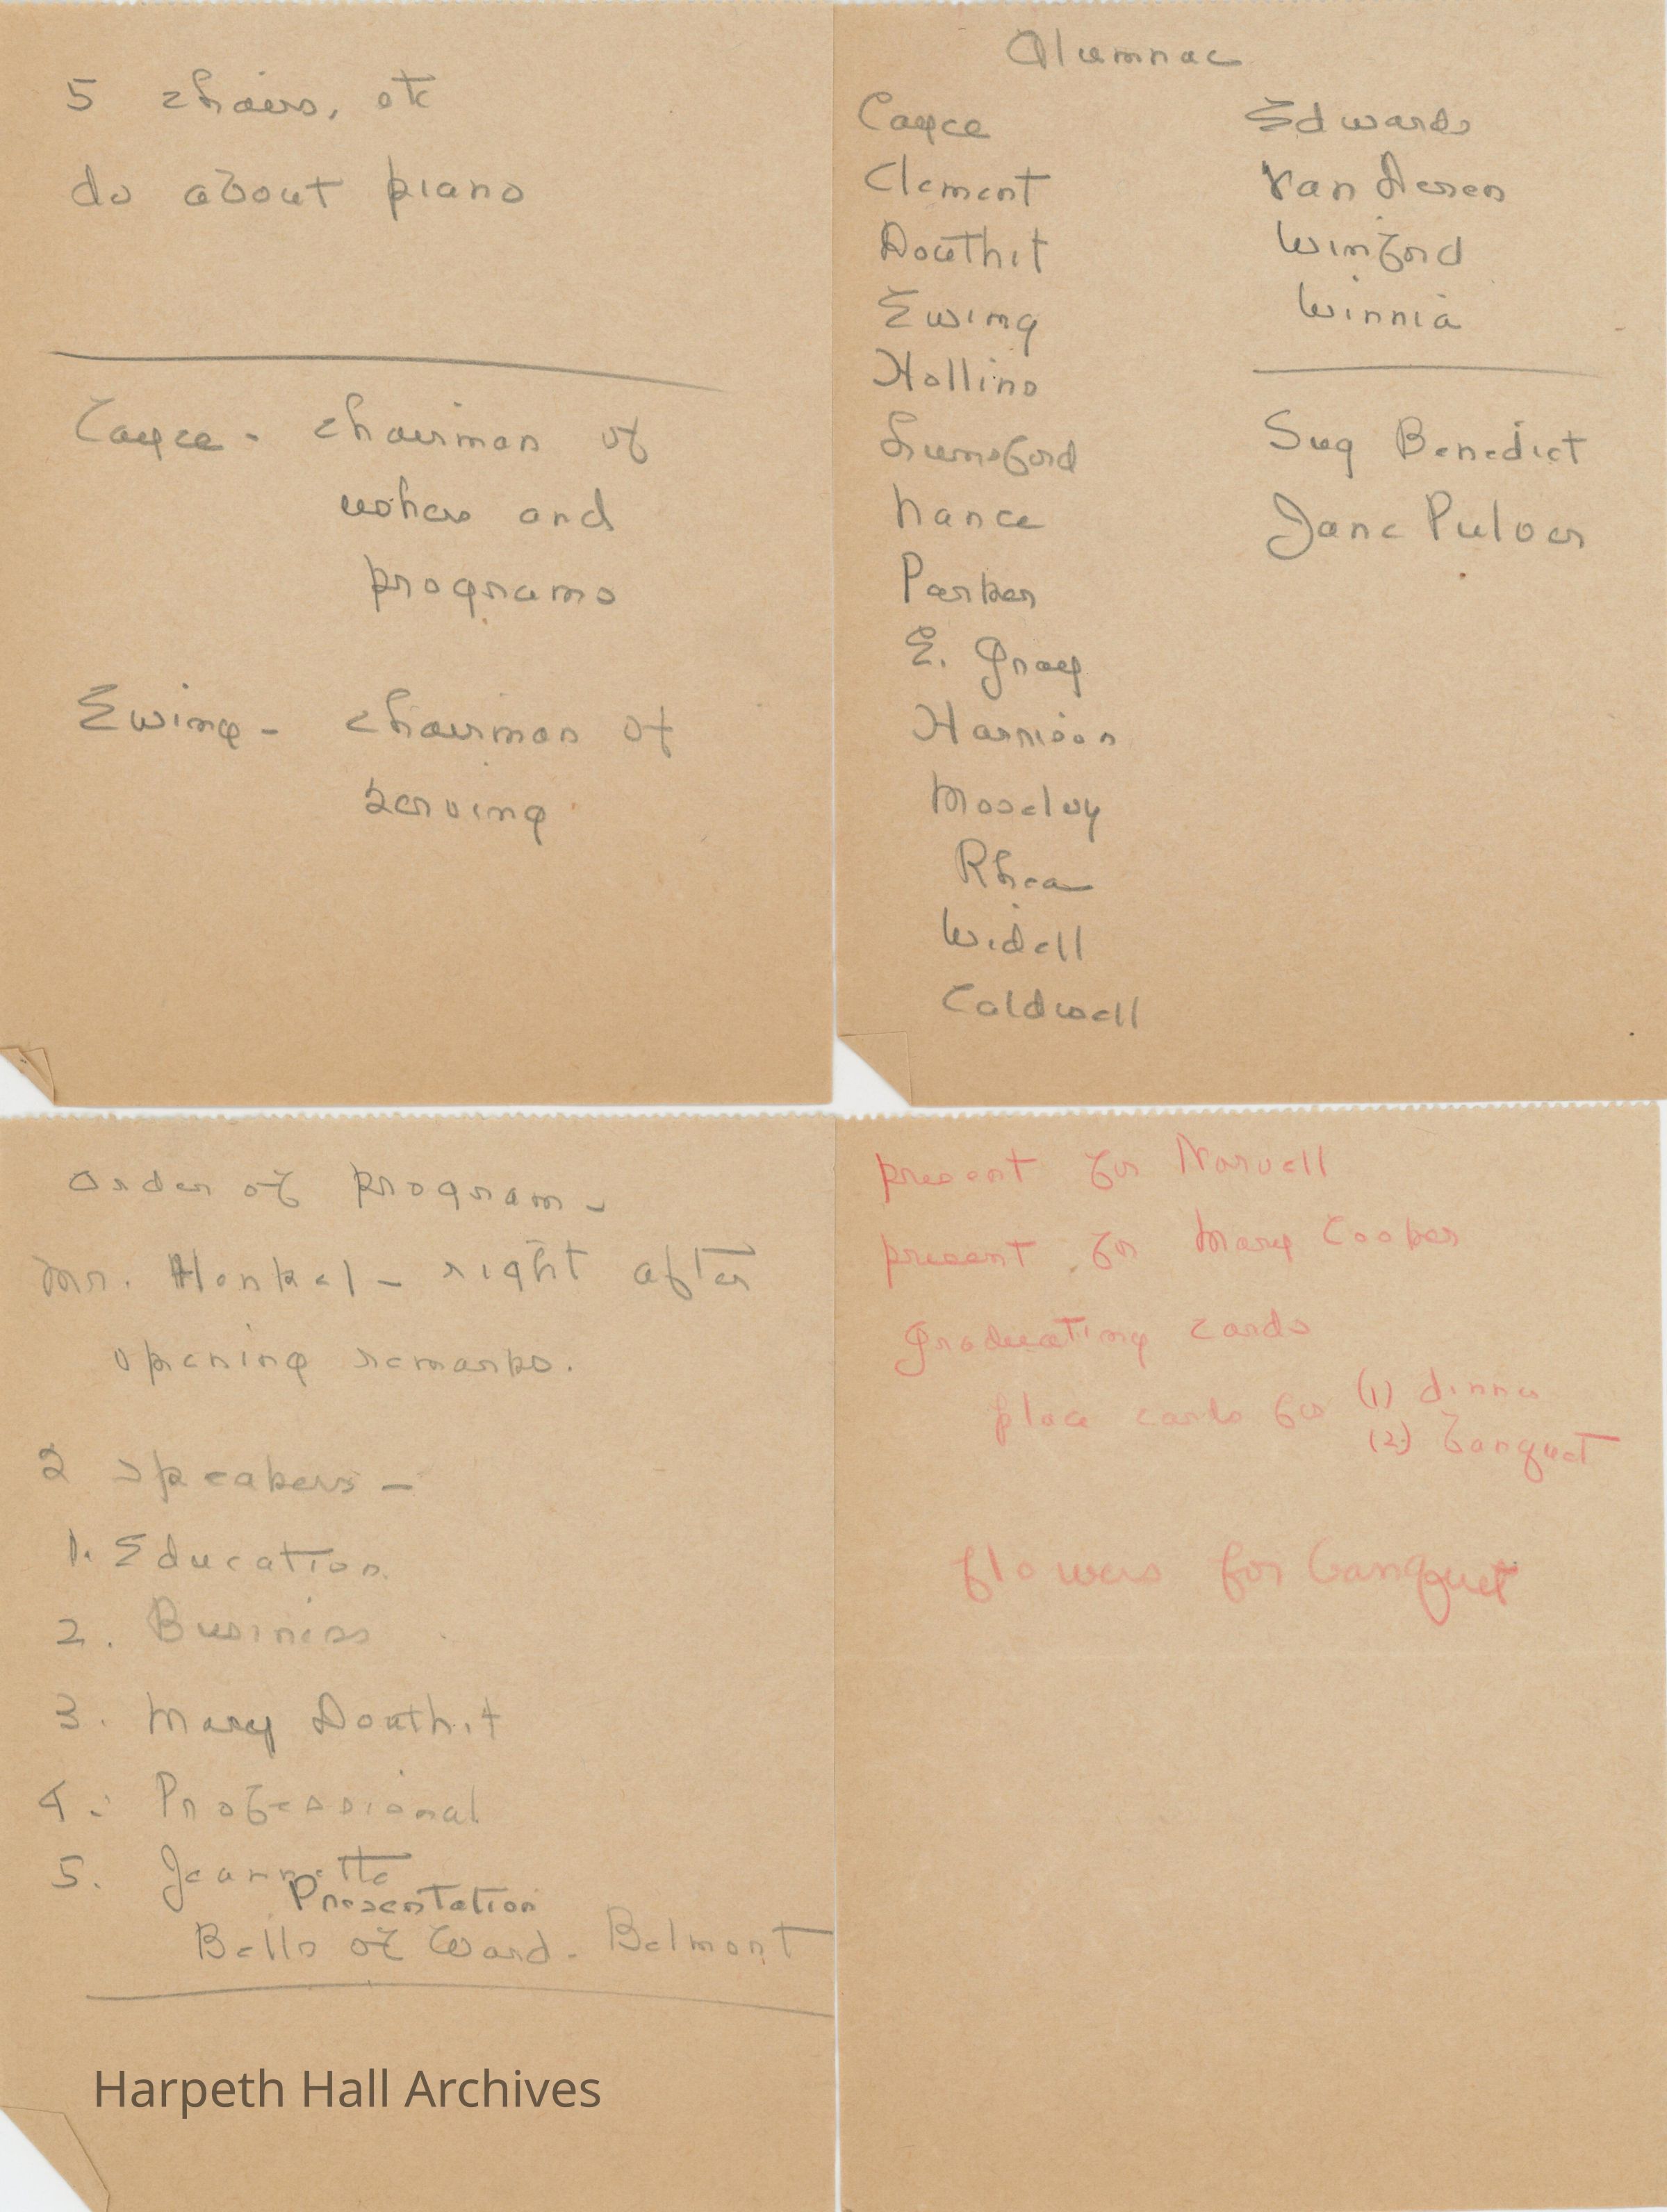 5 chairs, etc
do about piano
Cayce - chairman of
ushers and
programs
Ewing - chairman of
serving
Alumnae
Cayce
Clement
Douthit
Ewing
Hollins
Lunsford
Nance
Parker
E. Gray
Harrison
Moseley
Rhea
Widell
Caldwell
Edwards
Van Deren
Winford
Winnia
Sug Benedict
Jane Pulver
Order of program -
Mr. Henkel - right after
opening remarks.
2 speakers -
1. Education
2. Business
3. Mary Douthit
4. Professional
5. Jeannette
Presentation
Bells of Ward-Belmont
Harpeth Hall Archives
present for Norvell
present for Mary Cooper
Graduating cards
place cards for (1) dinner
(2) banquet
flowers for banquet